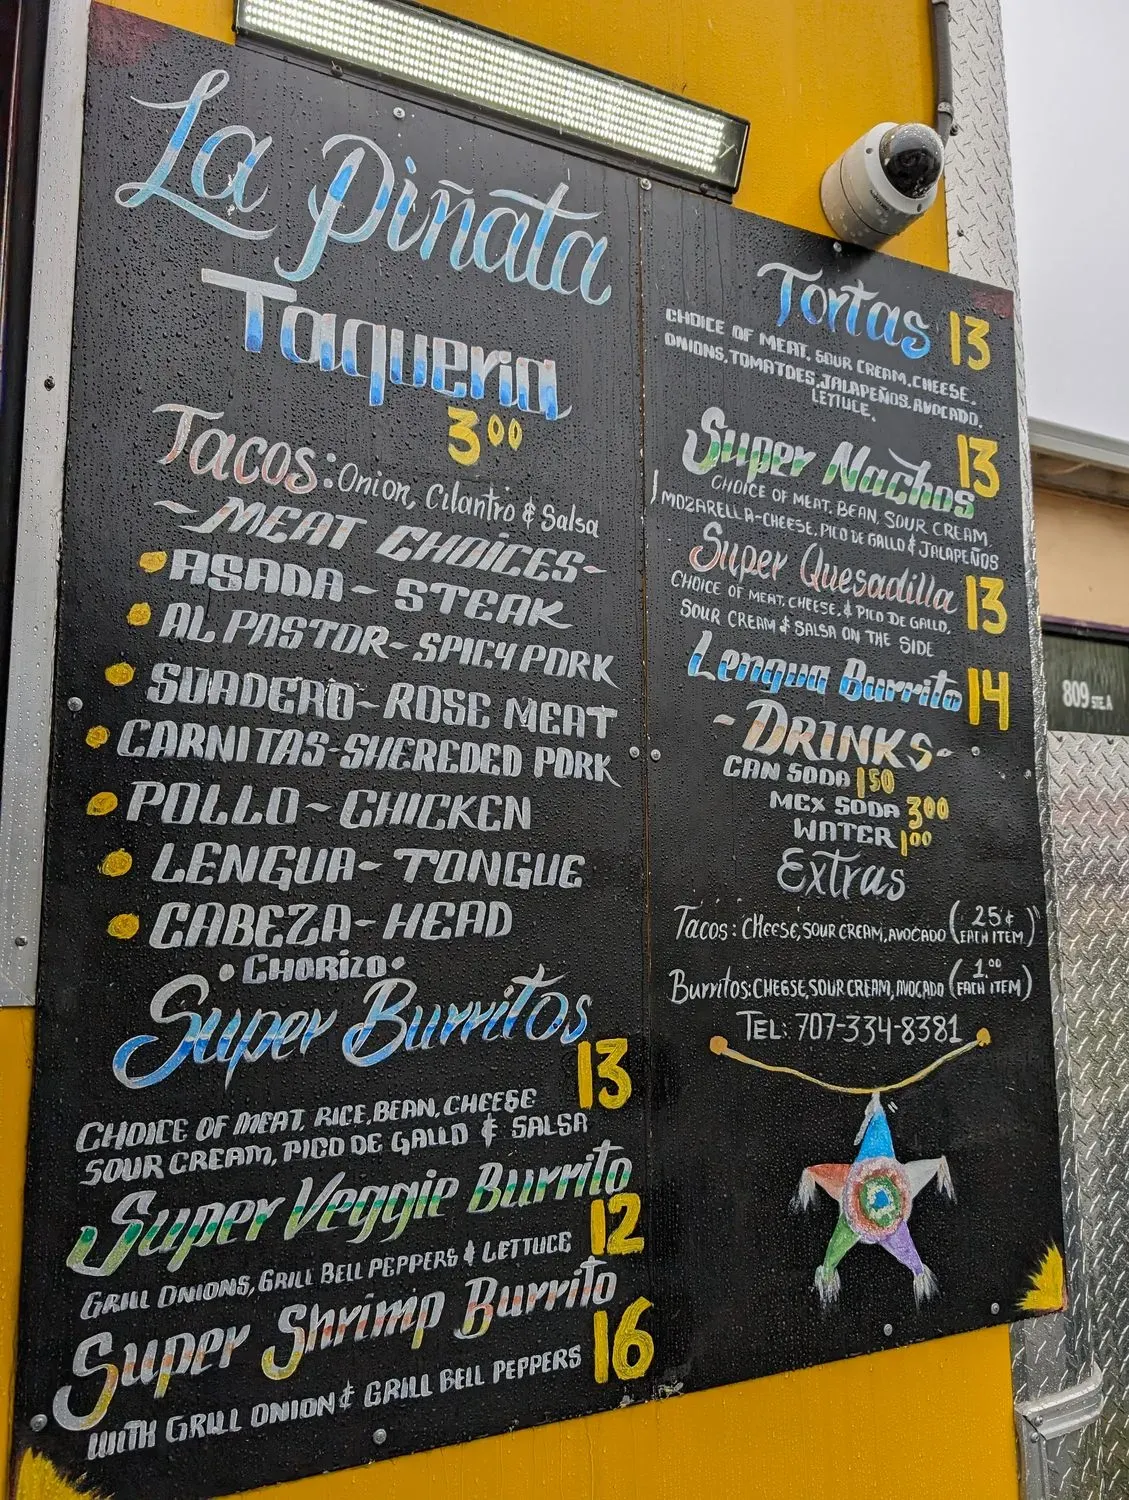 La Piñata
Taqueria
3.00
Tacos: Onion, Cilantro & Salsa
~MEAT CHOICES~
ASADA~ STEAK
AL PASTOR~ SPICY PORK
SUADERO~ ROSE MEAT
CARNITAS-SHEREDED PORK
POLLO~CHICKEN
LENGUA~ TONGUE
CABEZA~HEAD
•CHORIZO•
Super Burritos
13
CHOICE OF MEAT, RICE, BEAN, CHEESE
SOUR CREAM, PICO DE GALLO & SALSA
Super Veggie Burrito
12
GRILL ONIONS, GRILL BELL PEPPERS & LETTUCE
Super Shrimp Burrito
16
WITH GRILL ONION & GRILL BELL PEPPERS
Tortas 13
CHOICE OF MEAT, SOUR CREAM, CHEESE,
ONIONS, TOMATOES, JALAPEÑOS, AVOCADO,
LETTUCE,
Super Nachos 13
CHOICE OF MEAT, BEAN, SOUR CREAM,
MOZARELLA-CHEESE, PICO DE GALLO & JALAPEÑOS
Super Quesadilla 13
CHOICE OF MEAT, CHEESE, & PICO DE GALLO,
SOUR CREAM & SALSA ON THE SIDE
Lengua Burrito 14
~DRINKS~
CAN SODA 1.50
MEX SODA 3.00
WATER 1.00
Extras
Tacos: CHEESE, SOUR CREAM, AVOCADO (25¢ EACH ITEM)
Burritos: CHEESE, SOUR CREAM, AVOCADO (1.00 EACH ITEM)
TEL: 707-334-8381
809 STE. A